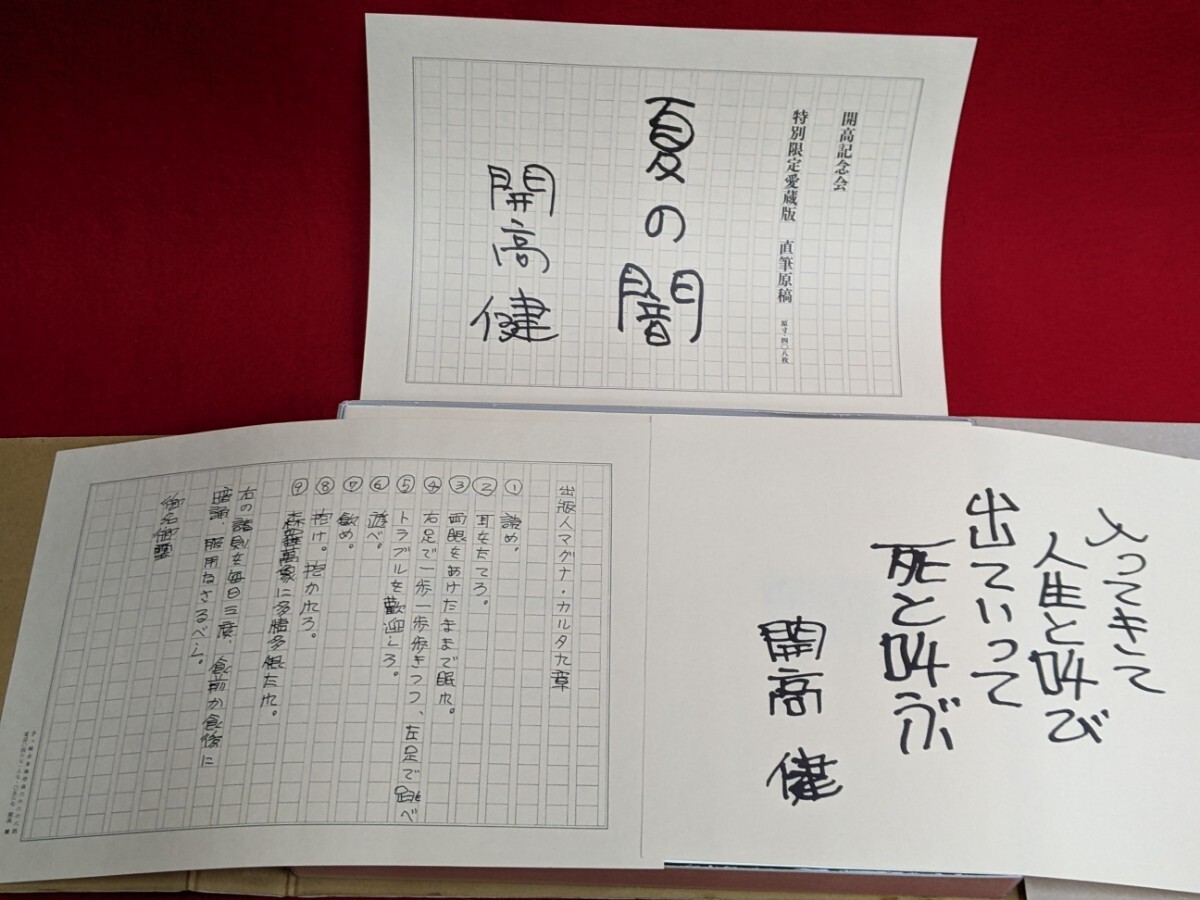 開高記念会
特別限定愛蔵版 直筆原稿 原寸・四〇八枚
夏の闇
開高健
入ってきて
人生と叫び
出ていって
死と叫ぶ
開高健
出版人マグナ・カルタ九章
① 読め。
② 耳をたてろ。
③ 両眼をあけたままで眠れ。
④ 右足で一歩一歩歩きつつ、左足で跳べ
⑤ トラブルを歓迎しろ。
⑥ 遊べ。
⑦ 飲め。
⑧ 抱け。抱かれろ。
⑨ 森羅萬象に多情多恨たれ。
右の諸則を毎日三度、食前か食後に
暗誦、服用なさるべし。
御名御璽